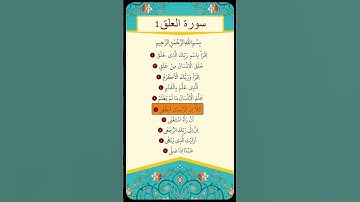 سورة العلق1
بِسْمِ اللهِ الرَّحْمٰنِ الرَّحِيْمِ
اِقْرَأْ بِاسْمِ رَبِّكَ الَّذِى خَلَقَ
خَلَقَ الْاِنْسَانَ مِنْ عَلَقٍ
اِقْرَأْ وَرَبُّكَ الْاَكْرَمُ
الَّذِى عَلَّمَ بِالْقَلَمِ
عَلَّمَ الْاِنْسَانَ مَا لَمْ يَعْلَمْ
كَلَّا اِنَّ الْاِنْسَانَ لَيَطْغٰى
اَنْ رَّاٰهُ اسْتَغْنٰى
اِنَّ اِلٰى رَبِّكَ الرُّجْعٰى
اَرَاَيْتَ الَّذِى يَنْهٰى
عَبْدًا اِذَا صَلّٰى